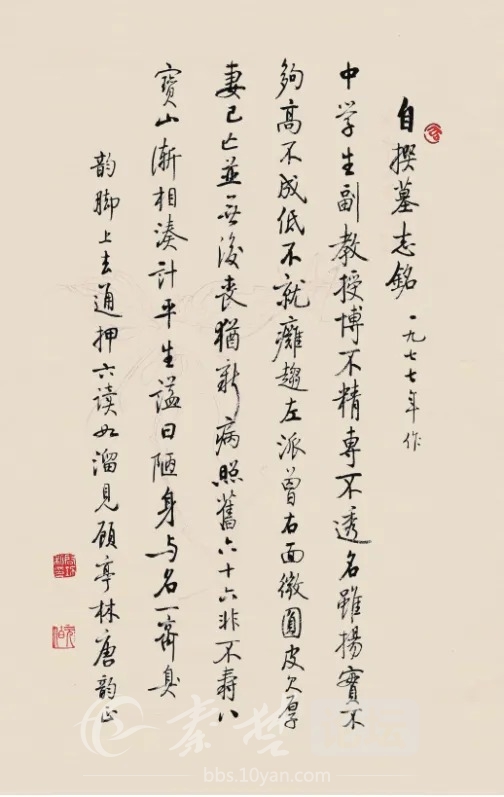 自撰墓志銘 一九七七年作
中学生副教授博不精專不透名雖揚實不
夠高不成低不就癱趨左派曾右面微圓皮欠厚
妻已亡並无後喪猶新病照舊六十六非不壽八
寶山漸相湊計平生謚曰陋身与名一齊臭
韵脚上去通押六读如溜見顾亭林唐韵正
秦楚
bbs.10yan.com